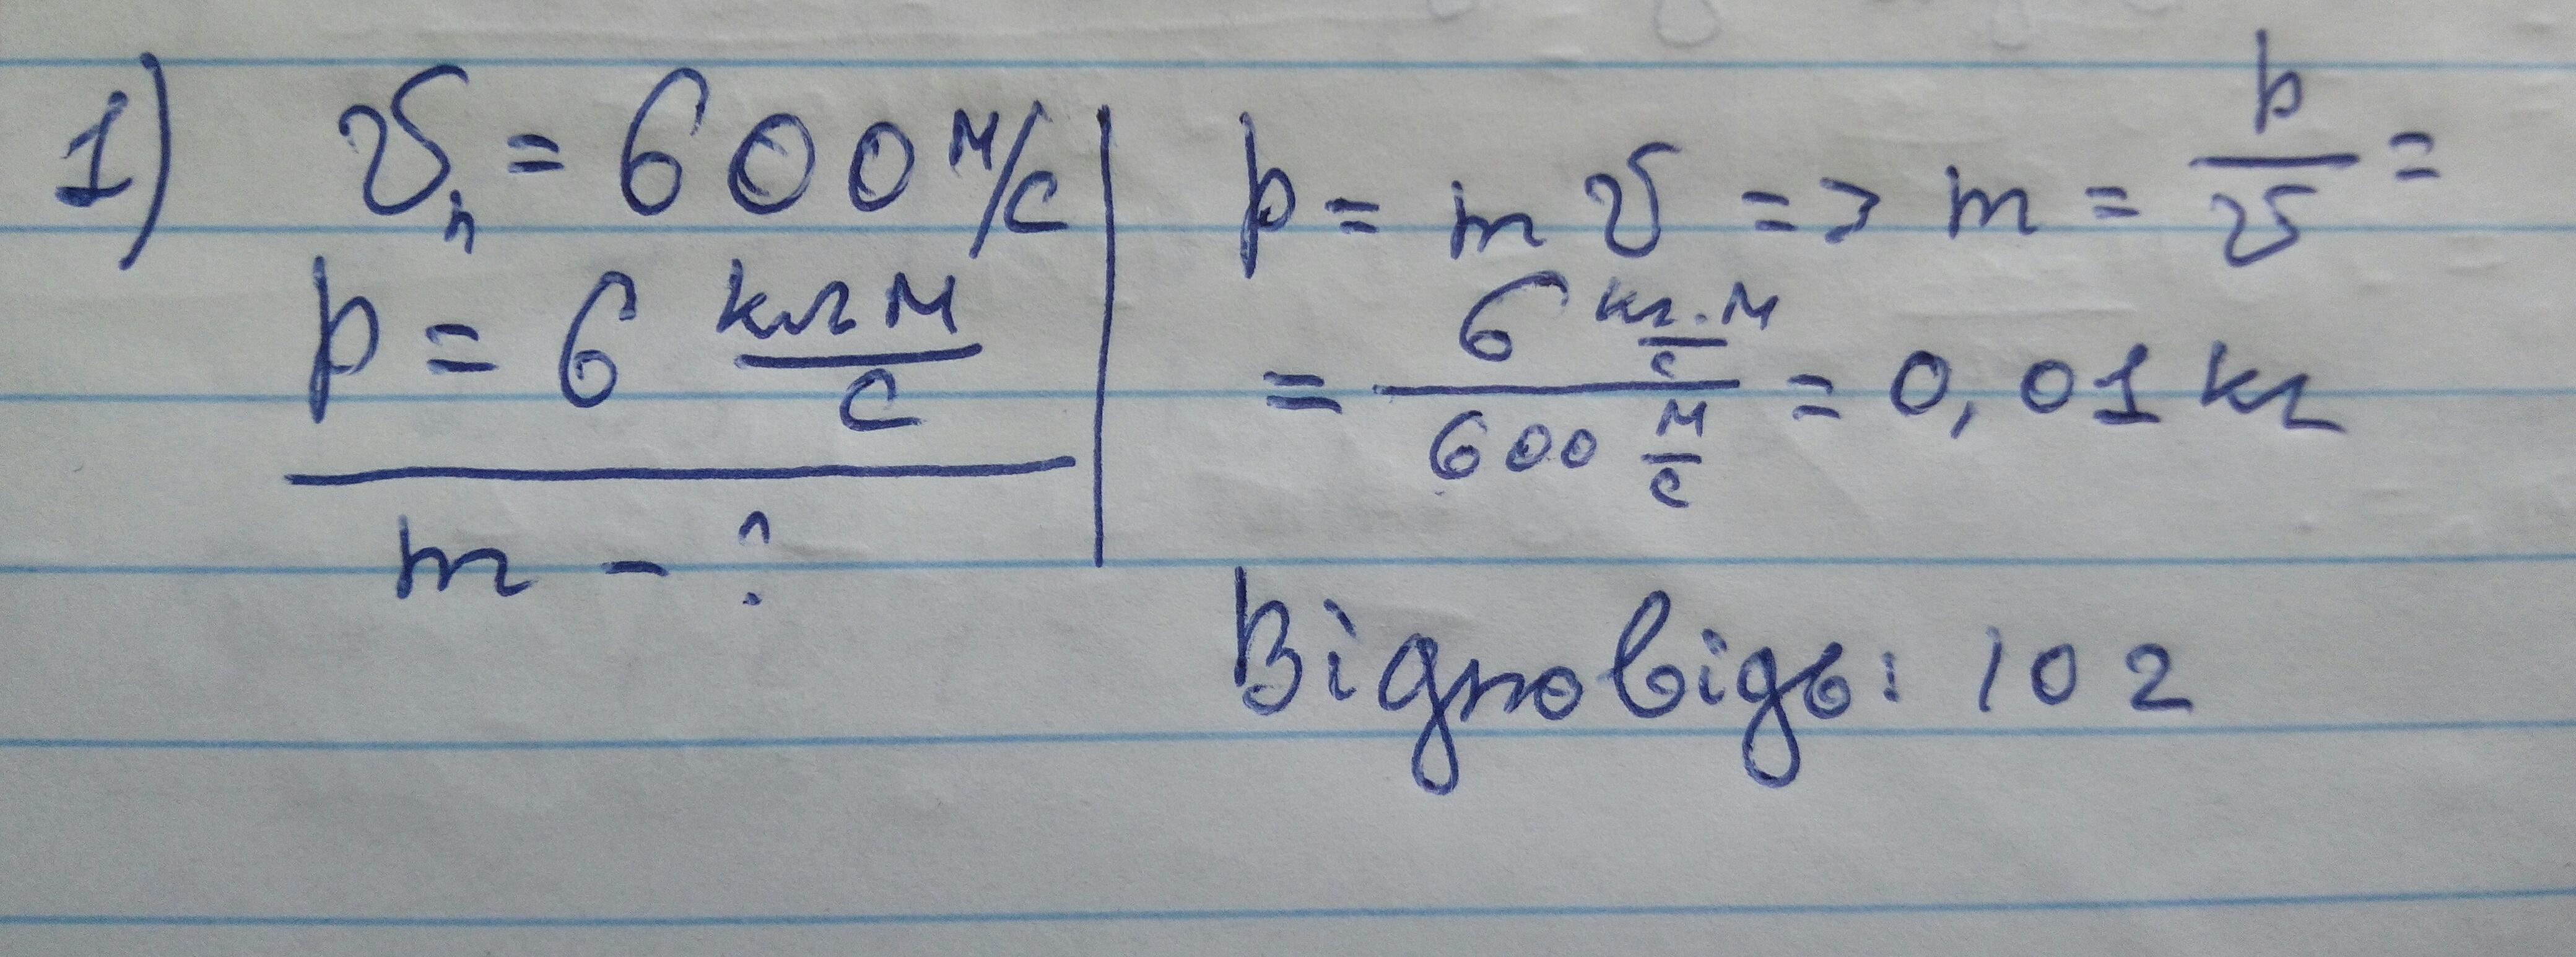 1) υₙ = 600 м/с
p = 6 кг м/с
m - ?
p = m υ => m = p/υ =
= 6 кг·м/с / 600 м/с = 0,01 кг
Відповідь: 10 г